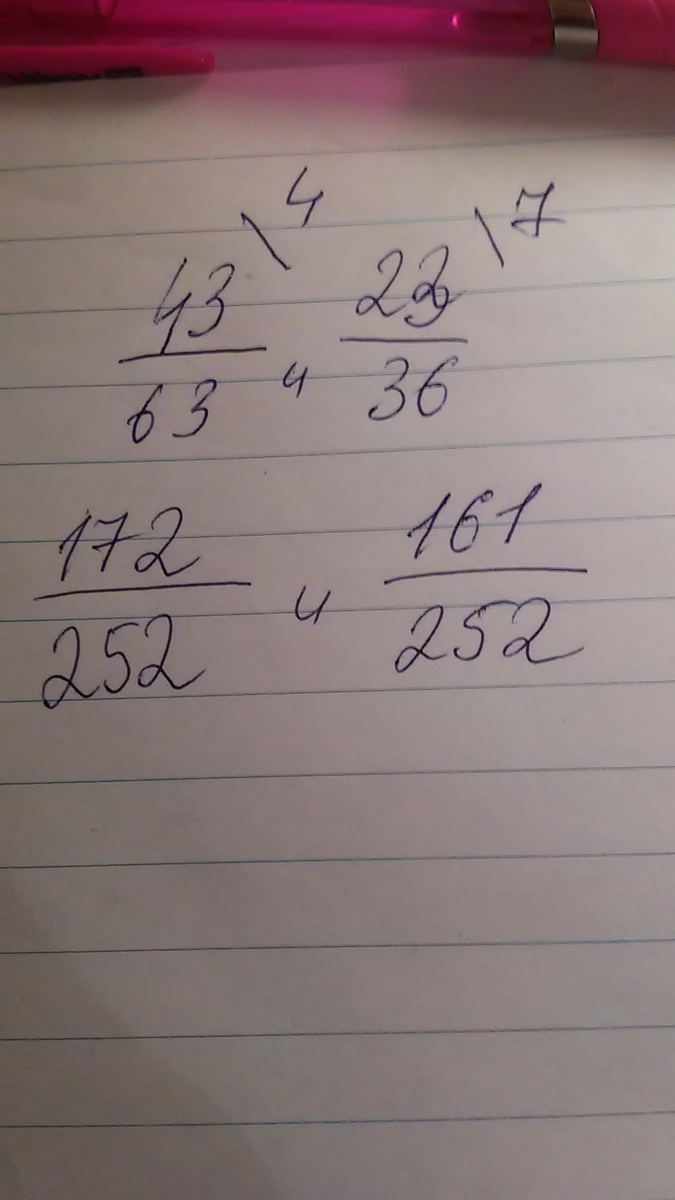 \4 \7
43/63 и 23/36
172/252 и 161/252